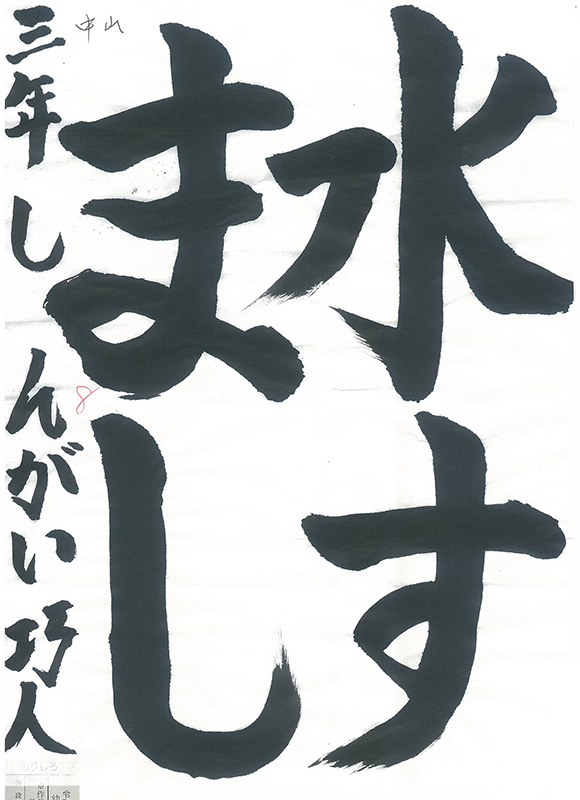 水す
まし
三年 しんがい 巧人
中山
8